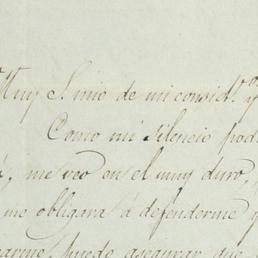 Muy S. mio de mi consid.ⁿ y
Como mi silencio pod
me veo en el muy duro,
me obligara á defenderme y
puede asegurar que